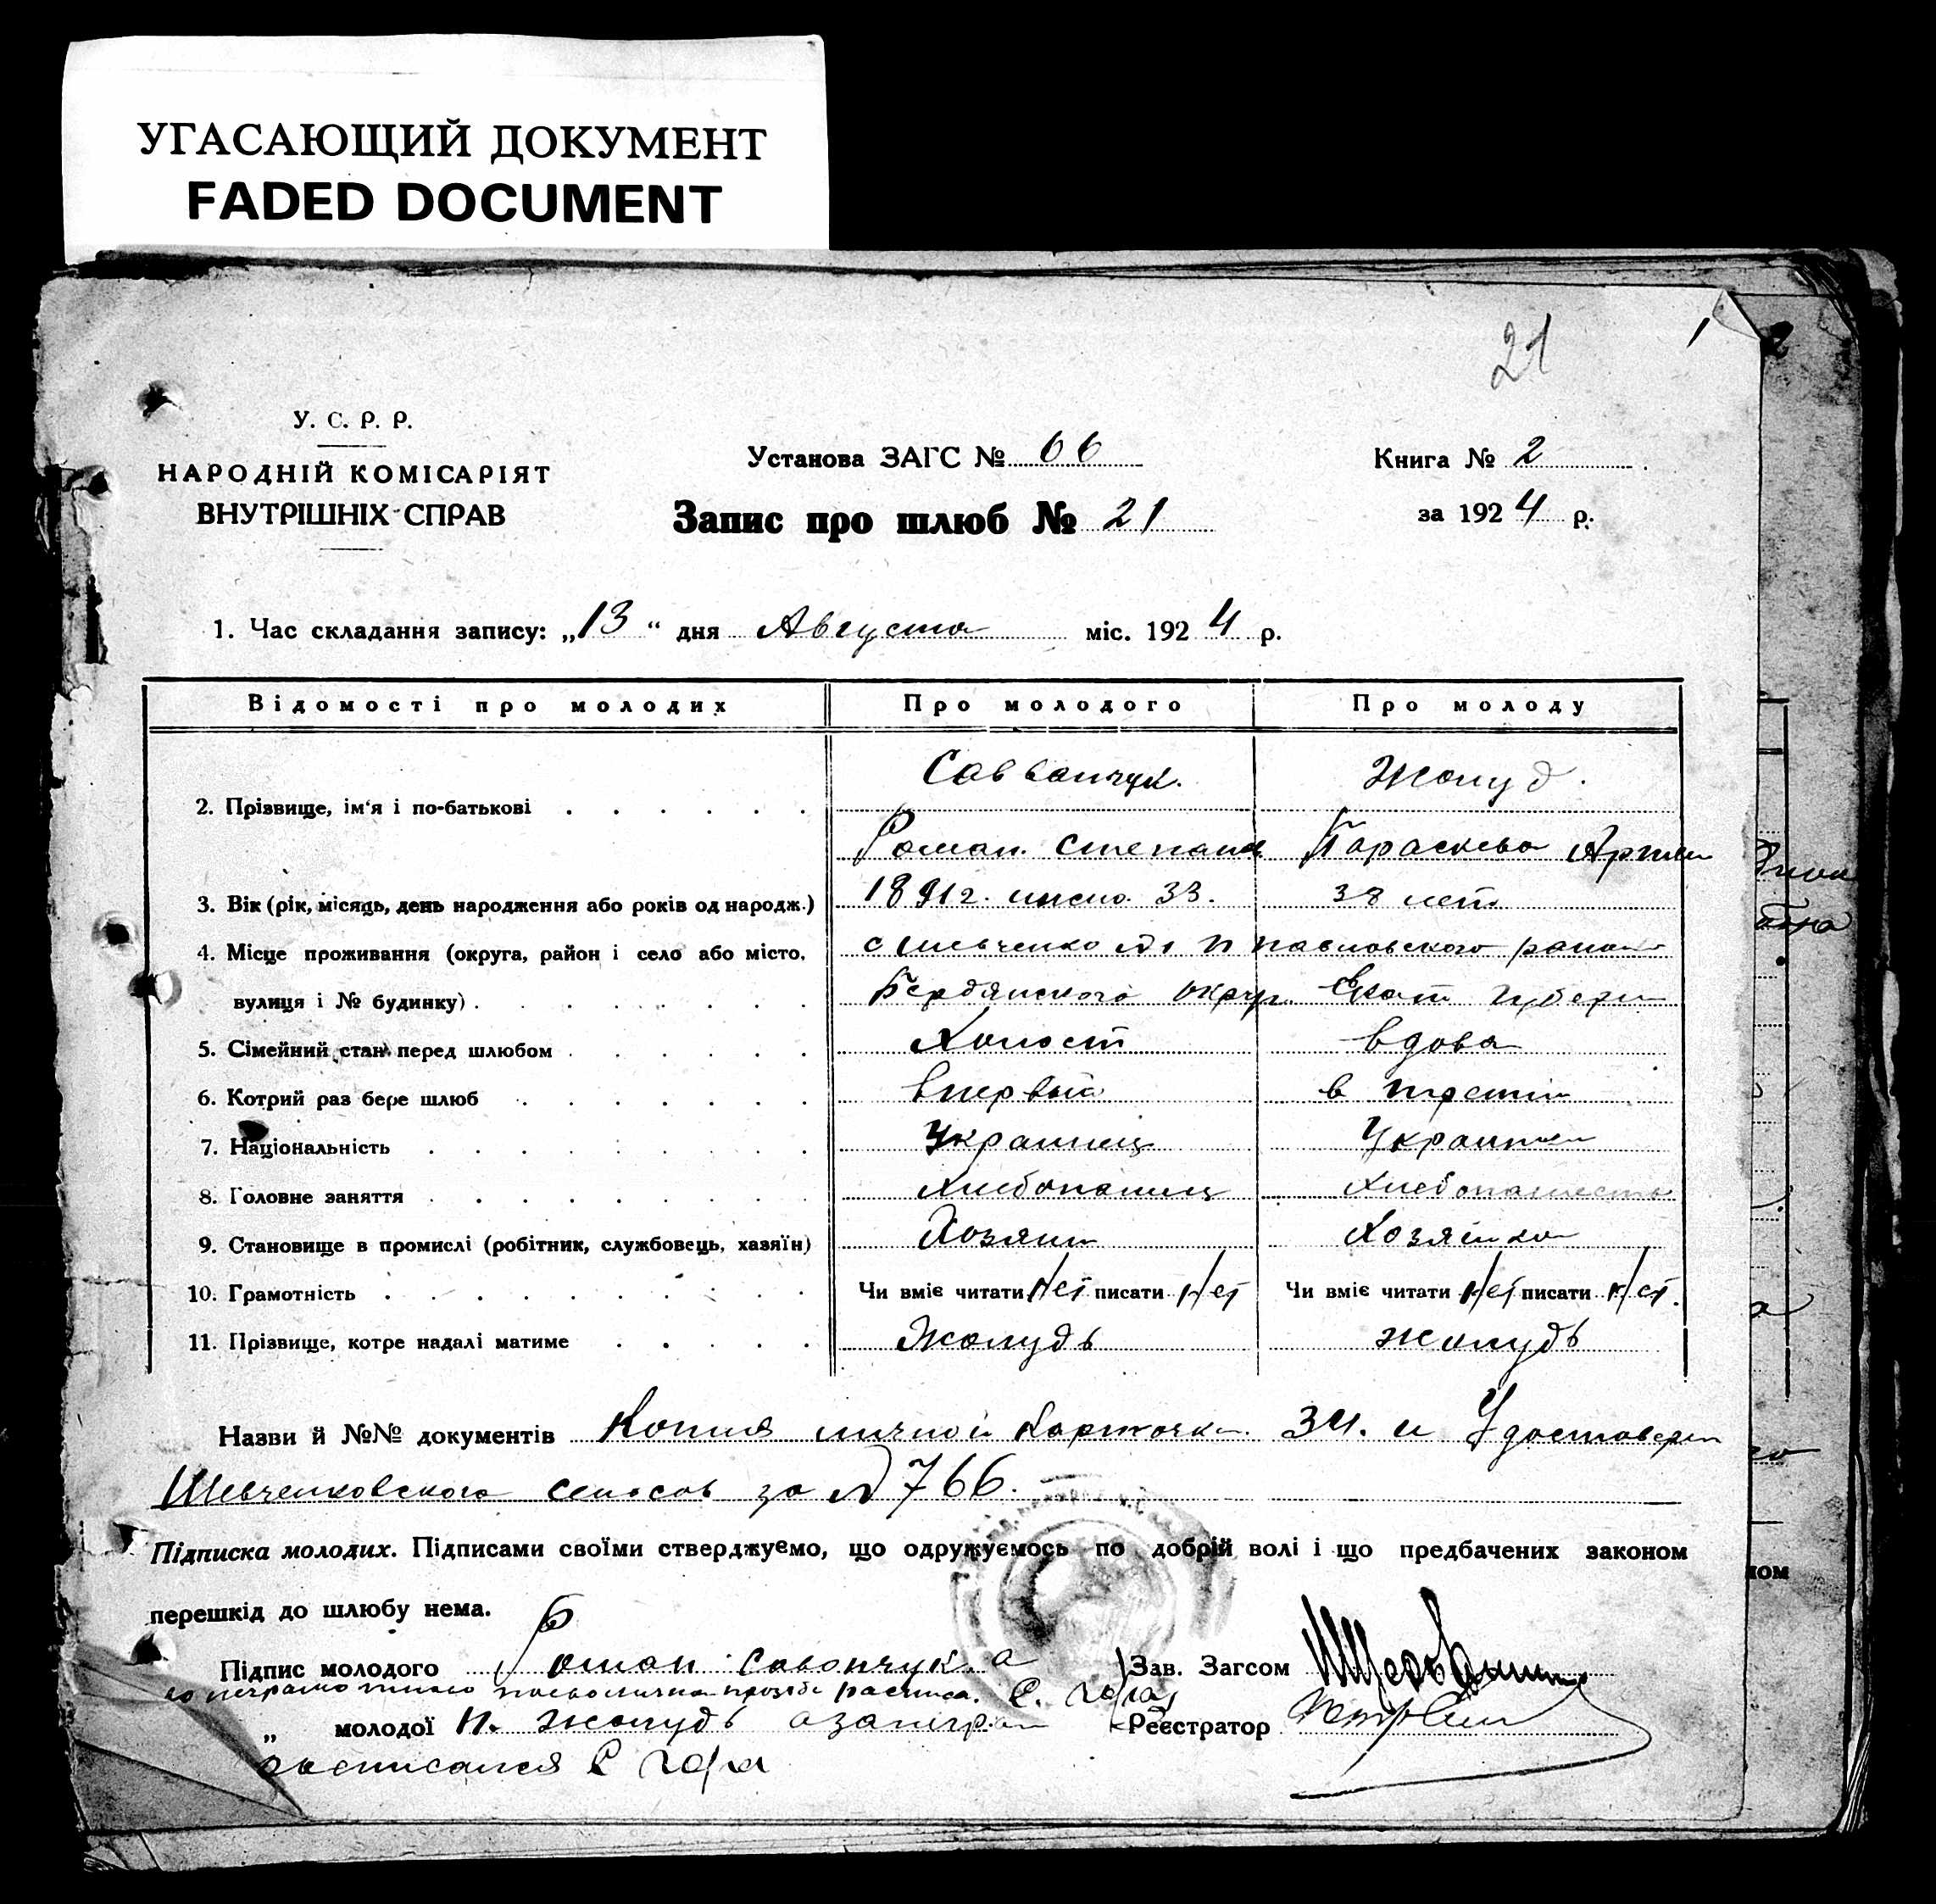 УГАСАЮЩИЙ ДОКУМЕНТ
FADED DOCUMENT
21
У. С. Р. Р.
НАРОДНІЙ КОМІСАРІЯТ
ВНУТРІШНІХ СПРАВ
Установа ЗАГС № 66
Запис про шлюб № 21
Книга № 2
за 1924 р.
1. Час складання запису: „13“ дня Августа міс. 1924 р.
Відомості про молодих Про молодого Про молоду
2. Прізвище, ім'я і по-батькові Савванчук. Жолуд.
Роман Степанов Параскева Артем
3. Вік (рік, місяць, день народження або років од народж.) 1891 г. число 33. 38 лет
4. Місце проживання (округа, район і село або місто, с Шевченко № 1 п павловского района
вулиця і № будинку) Бердянского округ. Екат губерн
5. Сімейний стан перед шлюбом Холост вдова
6. Котрий раз бере шлюб впервый в третий
7. Національність Украинец Украинка
8. Головне заняття Хлебопашец Хлебопашество
9. Становище в промислі (робітник, службовець, хазяїн) Хозяин Хозяйка
10. Грамотність Чи вміє читати нет писати нет Чи вміє читати нет писати нет.
11. Прізвище, котре надалі матиме Жолудь Жолудь
Назви й №№ документів Копия личной Карточки 34. и Удостоверен
Шевченковского сельсов за № 766.
Підписка молодих. Підписами своїми стверджуємо, що одружуємось по добрій волі і що предбачених законом
перешкід до шлюбу нема.
Підпис молодого Роман Савончук а Зав. Загсом
„ молодої П. Жолудь а за неграм Реєстратор
расписался